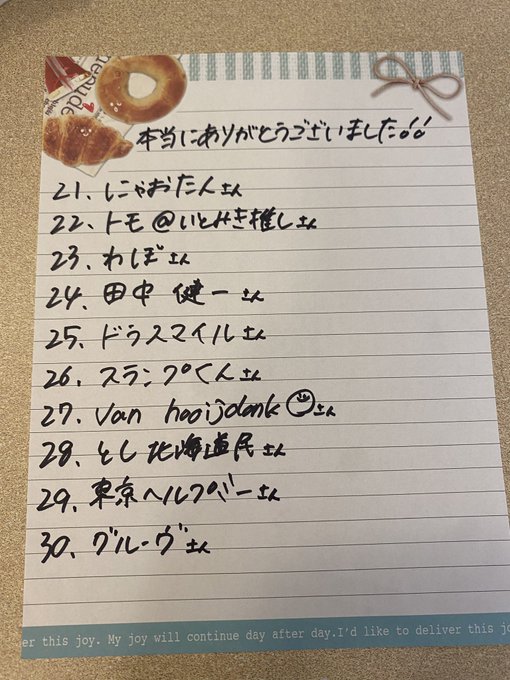 本当にありがとうございました!!
21、にゃおたんさん
22、トモ@いとみき推しさん
23、わしぼさん
24、田中 健一さん
25、ドラスマイルさん
26、スランプくんさん
27、Van hooijdonkさん
28、とし北海道民さん
29、東京ヘルプバーさん
30、グルーヴさん
er this joy. My joy will continue day after day.I'd like to deliver this jo